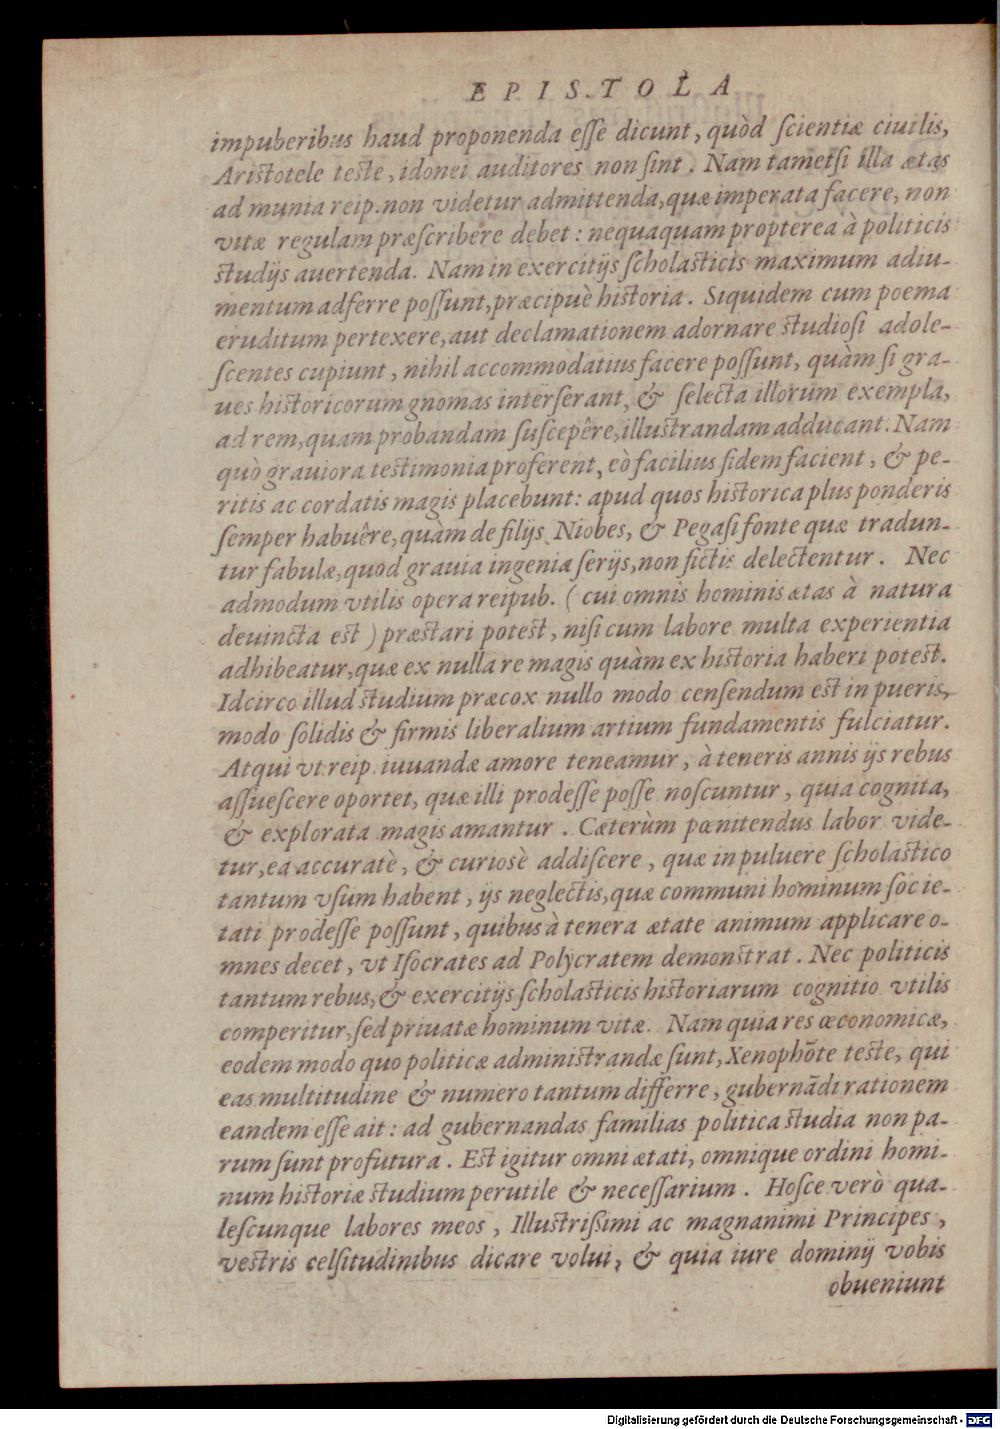 EPISTOLA
impuberibus haud proponenda eſſe dicunt, quòd ſcientiæ ciuilis,
Ariſtotele teſte, idonei auditores non ſint. Nam tametſi illa ætas
ad munia reip. non videtur admittenda, quæ imperata facere, non
vitæ regulam præſcribere debet: nequaquam propterea à politicis
ſtudijs auertenda. Nam in exercitijs ſcholaſticis maximum adiu-
mentum adferre poſſunt, præcipuè hiſtoria. Siquidem cum poema
eruditum pertexere, aut declamationem adornare ſtudioſi adole-
ſcentes cupiunt, nihil accommodatius facere poſſunt, quàm ſi gra-
ues hiſtoricorum gnomas interſerant, & ſelecta illorum exempla,
ad rem, quam probandam ſuſcepêre, illuſtrandam adducant. Nam
quò grauiora teſtimonia proferent, eò facilius fidem facient, & pe-
ritis ac cordatis magis placebunt: apud quos hiſtorica plus ponderis
ſemper habuêre, quàm de filijs Niobes, & Pegaſi fonte quæ tradun-
tur fabulæ, quod grauia ingenia ſerijs, non fictis delectentur. Nec
admodum vtilis opera reipub. (cui omnis hominis ætas à natura
deuincta eſt) præſtari poteſt, niſi cum labore multa experientia
adhibeatur, quæ ex nulla re magis quàm ex hiſtoria haberi poteſt.
Idcirco illud ſtudium præcox nullo modo cenſendum eſt in pueris,
modo ſolidis & firmis liberalium artium fundamentis fulciatur.
Atqui vt reip. iuuandæ amore teneamur, à teneris annis ijs rebus
aſſueſcere oportet, quæ illi prodeſſe poſſe noſcuntur, quia cognita,
& explorata magis amantur. Cæterùm pœnitendus labor vide-
tur, ea accuratè, & curioſè addiſcere, quæ in puluere ſcholaſtico
tantum vſum habent, ijs neglectis, quæ communi hominum ſocie-
tati prodeſſe poſſunt, quibus à tenera ætate animum applicare o-
mnes decet, vt Iſocrates ad Polycratem demonſtrat. Nec politicis
tantum rebus, & exercitijs ſcholaſticis hiſtoriarum cognitio vtilis
comperitur, ſed priuatæ hominum vitæ. Nam quia res œconomicæ,
eodem modo quo politicæ adminiſtrandæ ſunt, Xenophõte teſte, qui
eas multitudine & numero tantum differre, gubernãdi rationem
eandem eſſe ait: ad gubernandas familias politica ſtudia non pa-
rum ſunt profutura. Eſt igitur omni ætati, omnique ordini homi-
num hiſtoriæ ſtudium perutile & neceſſarium. Hoſce verò qua-
leſcunque labores meos, Illuſtriſsimi ac magnanimi Principes,
veſtris celſitudinibus dicare volui, & quia iure dominij vobis
obueniunt
Digitalisierung gefördert durch die Deutsche Forschungsgemeinschaft - DFG